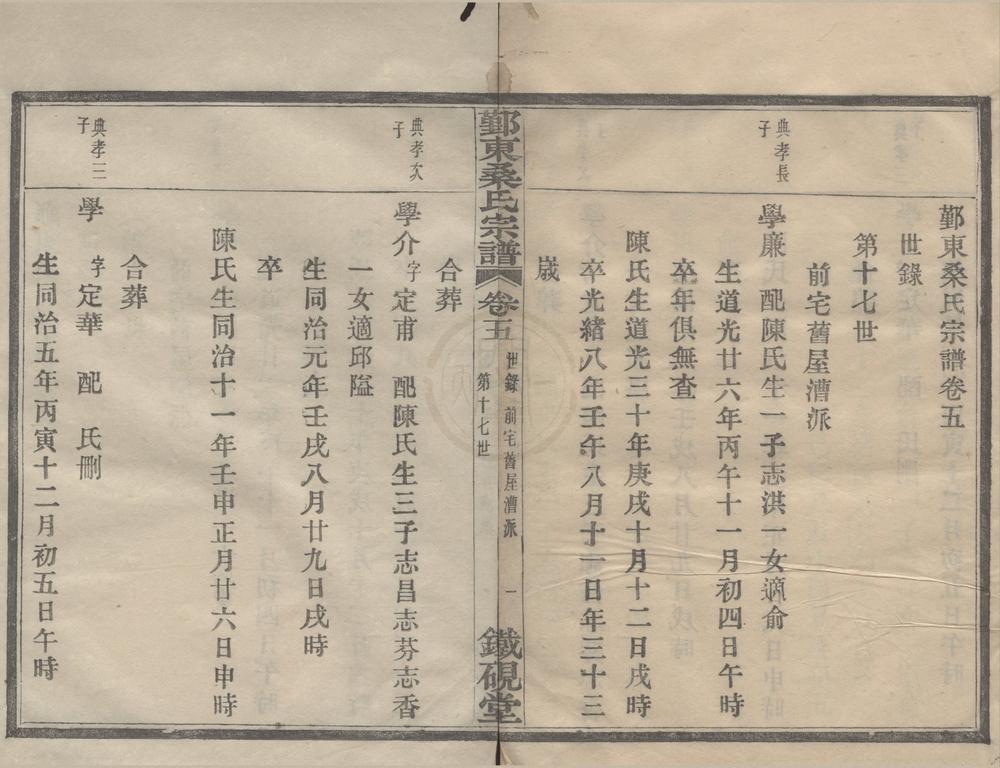 鄞東桑氏宗譜卷五
世錄
第十七世
前宅舊屋漕派
典孝長子
學廉 配陳氏生一子志洪一女適俞
生道光廿六年丙午十一月初四日午時
卒年俱無查
陳氏生道光三十年庚戌十月十二日戌時
卒光緒八年壬午八月十一日年三十三
嵗
鄞東桑氏宗譜 卷五 世錄 前宅舊屋漕派 第十七世 一 鐵硯堂
合葬
典孝次子
學介字定甫 配陳氏生三子志昌志芬志香
一女適邱隘
生同治元年壬戌八月廿九日戌時
卒
陳氏生同治十一年壬申正月廿六日申時
合葬
典孝三子
學 字定華 配 氏刪
生同治五年丙寅十二月初五日午時